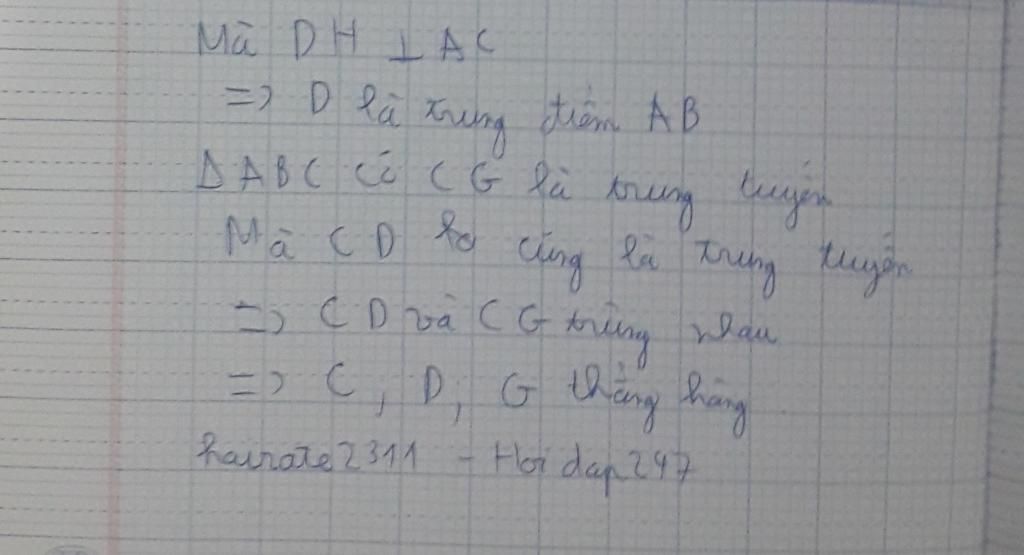 Mà DH ⊥ AC
=> D là trung điểm AB
Δ ABC có CG là trung tuyến
Mà CD cũng là trung tuyến
=> CD và CG trùng nhau
=> C, D, G thẳng hàng
hainate2311 - Hoidap247